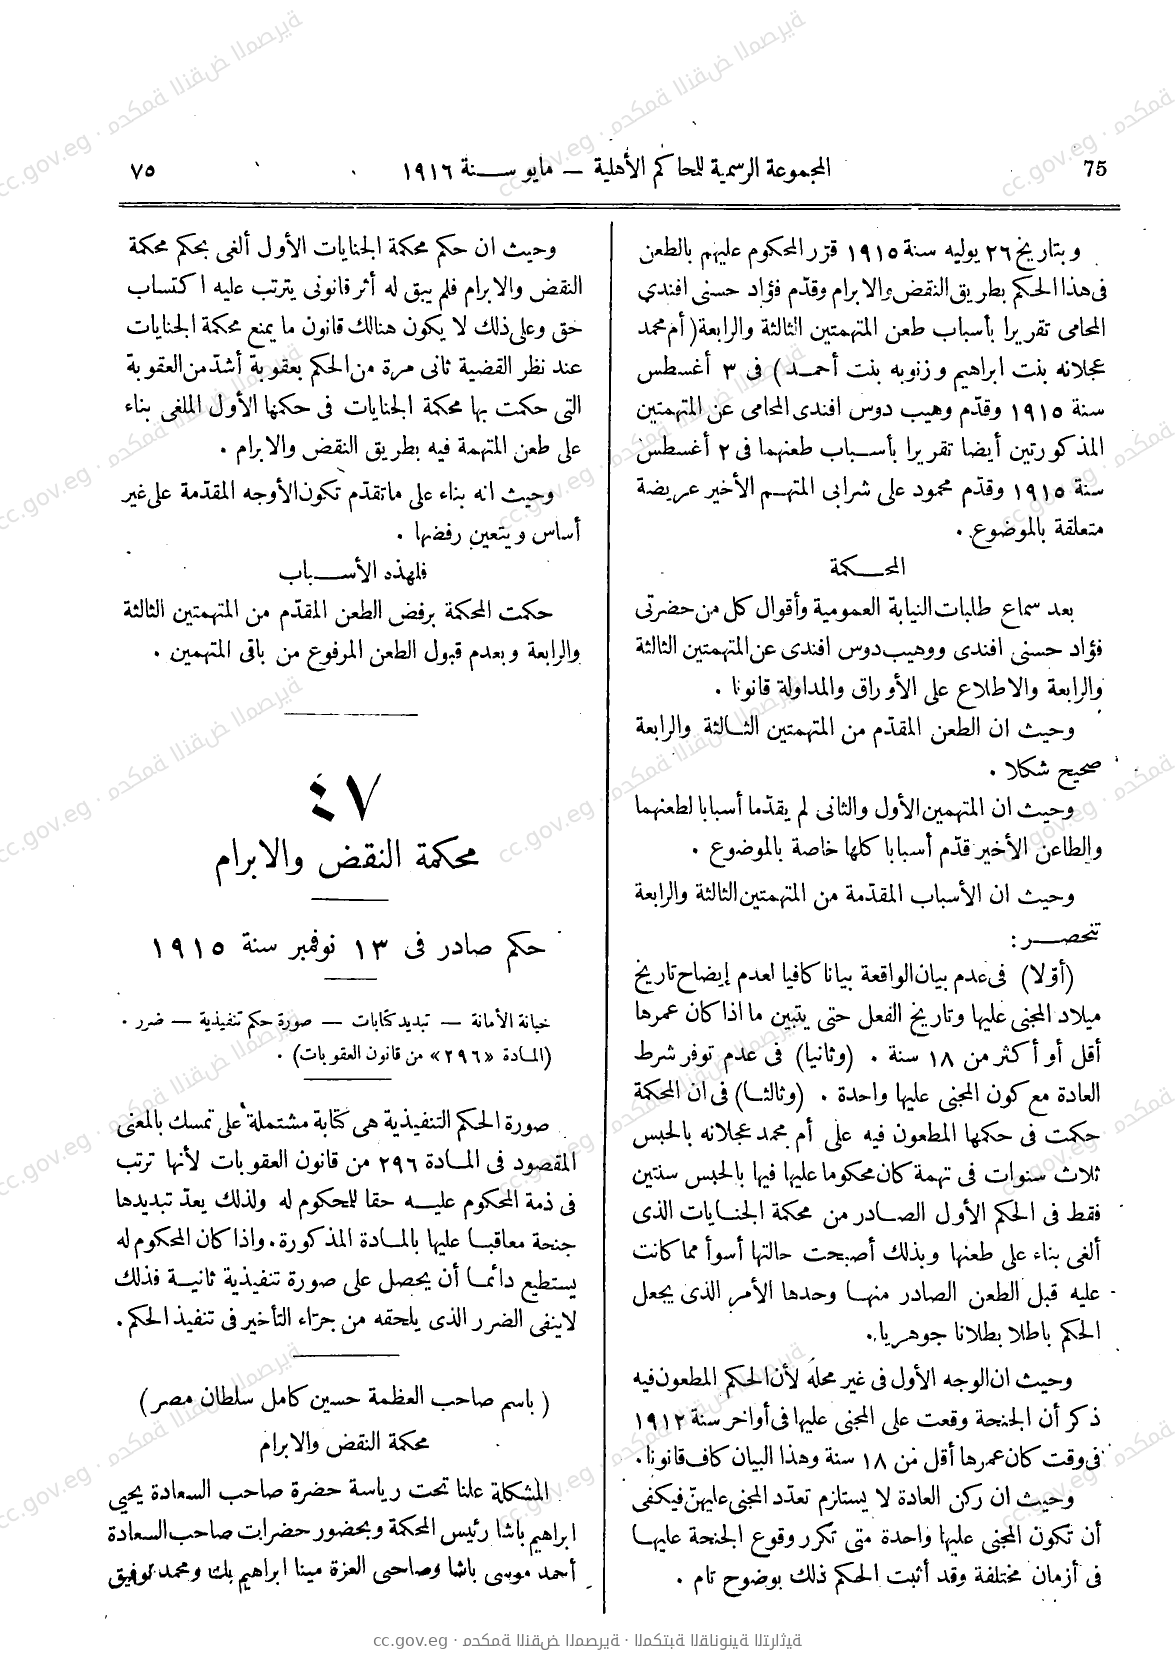 75
المجموعة الرسمية للمحاكم الأهلية — مايو سنة ١٩١٦
٧٥
وبتاريخ ٢٦ يوليه سنة ١٩١٥ قرّر المحكوم عليهم بالطعن
فى هذا الحكم بطريق النقض والابرام وقدّم فؤاد حسنى افندى
المحامى تقريرا بأسباب طعن المتهمتين الثالثة والرابعة (أم محمد
عجلانه بنت ابراهيم وزنوبه بنت أحمد) فى ٣ أغسطس
سنة ١٩١٥ وقدّم وهيب دوس افندى المحامى عن المتهمتين
المذكورتين أيضا تقريرا بأسباب طعنهما فى ٢ أغسطس
سنة ١٩١٥ وقدّم محمود على شرابى المتهم الأخير عريضة
متعلقة بالموضوع .
المحكمة
بعد سماع طلبات النيابة العمومية وأقوال كل من حضرتى
فؤاد حسنى افندى ووهيب دوس افندى عن المتهمتين الثالثة
والرابعة والاطلاع على الأوراق والمداولة قانونا .
وحيث ان الطعن المقدّم من المتهمتين الثالثة والرابعة
صحيح شكلا .
وحيث ان المتهمين الأول والثانى لم يقدّما أسبابا لطعنهما
والطاعن الأخير قدّم أسبابا كلها خاصة بالموضوع .
وحيث ان الأسباب المقدّمة من المتهمتين الثالثة والرابعة
تنحصر :
(أوّلا) فى عدم بيان الواقعة بيانا كافيا لعدم إيضاح تاريخ
ميلاد المجنى عليها وتاريخ الفعل حتى يتبين ما اذا كان عمرها
أقل أو أكثر من ١٨ سنة . (وثانيا) فى عدم توفر شرط
العادة مع كون المجنى عليها واحدة . (وثالثا) فى ان المحكمة
حكمت فى حكمها المطعون فيه على أم محمد عجلانه بالحبس
ثلاث سنوات فى تهمة كان محكوما عليها فيها بالحبس سنتين
فقط فى الحكم الأول الصادر من محكمة الجنايات الذى
ألغى بناء على طعنها وبذلك أصبحت حالتها أسوأ مما كانت
عليه قبل الطعن الصادر منها وحدها الأمر الذى يجعل
الحكم باطلا بطلانا جوهريا .
وحيث ان الوجه الأول فى غير محله لأن الحكم المطعون فيه
ذكر أن الجنحة وقعت على المجنى عليها فى أواخر سنة ١٩١٢
فى وقت كان عمرها أقل من ١٨ سنة وهذا البيان كاف قانونا .
وحيث ان ركن العادة لا يستلزم تعدّد المجنى عليهنّ فيكفى
أن تكون المجنى عليها واحدة متى تكرر وقوع الجنحة عليها
فى أزمان مختلفة وقد أثبت الحكم ذلك بوضوح تام .
وحيث ان حكم محكمة الجنايات الأول ألغى بحكم محكمة
النقض والابرام فلم يبق له أثر قانونى يترتب عليه اكتساب
حق وعلى ذلك لا يكون هنالك قانون ما يمنع محكمة الجنايات
عند نظر القضية ثانى مرة من الحكم بعقوبة أشدّ من العقوبة
التى حكمت بها محكمة الجنايات فى حكمها الأول الملغى بناء
على طعن المتهمة فيه بطريق النقض والابرام .
وحيث انه بناء على ما تقدّم تكون الأوجه المقدّمة على غير
أساس ويتعين رفضها .
فلهذه الأسباب
حكمت المحكمة برفض الطعن المقدّم من المتهمتين الثالثة
والرابعة وبعدم قبول الطعن المرفوع من باقى المتهمين .
٤٧
محكمة النقض والابرام
حكم صادر فى ١٣ نوفمبر سنة ١٩١٥
خيانة الأمانة — تبديد كتابات — صورة حكم تنفيذية — ضرر .
(المادة «٢٩٦» من قانون العقوبات) .
صورة الحكم التنفيذية هى كتابة مشتملة على تمسك بالمعنى
المقصود فى المادة ٢٩٦ من قانون العقوبات لأنها ترتب
فى ذمة المحكوم عليه حقا للمحكوم له ولذلك يعدّ تبديدها
جنحة معاقبا عليها بالمادة المذكورة . واذا كان المحكوم له
يستطيع دائما أن يحصل على صورة تنفيذية ثانية فذلك
لاينفى الضرر الذى يلحقه من جرّاء التأخير فى تنفيذ الحكم .
(باسم صاحب العظمة حسين كامل سلطان مصر)
محكمة النقض والابرام
المشكلة علنا تحت رياسة حضرة صاحب السعادة يحيى
ابراهيم باشا رئيس المحكمة وبحضور حضرات صاحب السعادة
أحمد موسى باشا وصاحبى العزة مينا ابراهيم بك ومحمد توفيق
cc.gov.eg · محكمة النقض المصرية · المكتبة القانونية التراثية